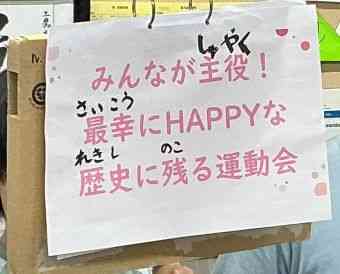 しゅやく
みんなが主役!
さいこう
最幸にHAPPYな
れきし のこ
歴史に残る運動会